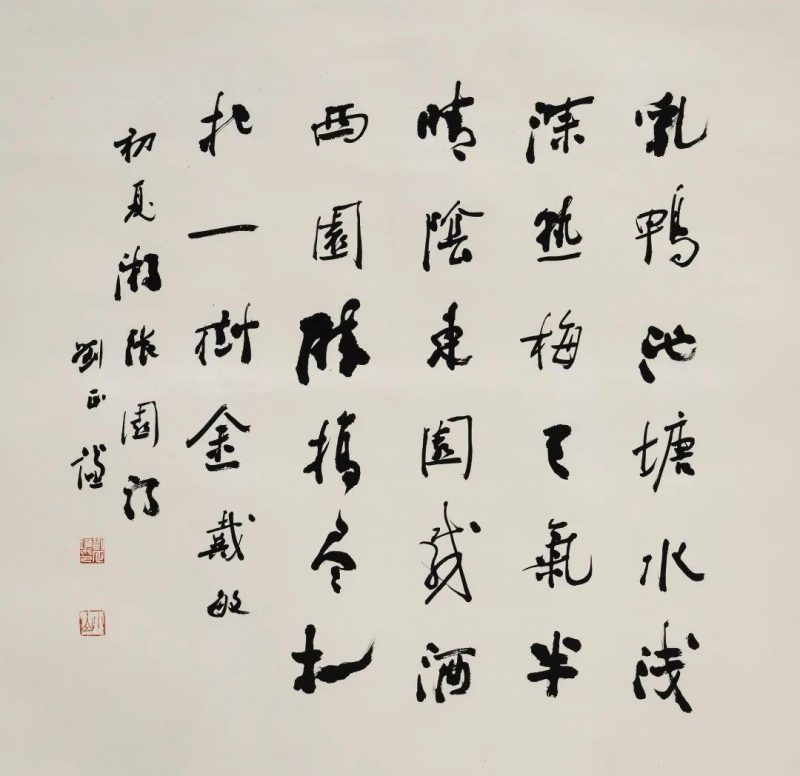 乳鴨池塘水浅
深熟梅天氣半
晴陰東園載酒
西園醉摘尽枇
杷一樹金戴敏
初夏游張園詩
劉正